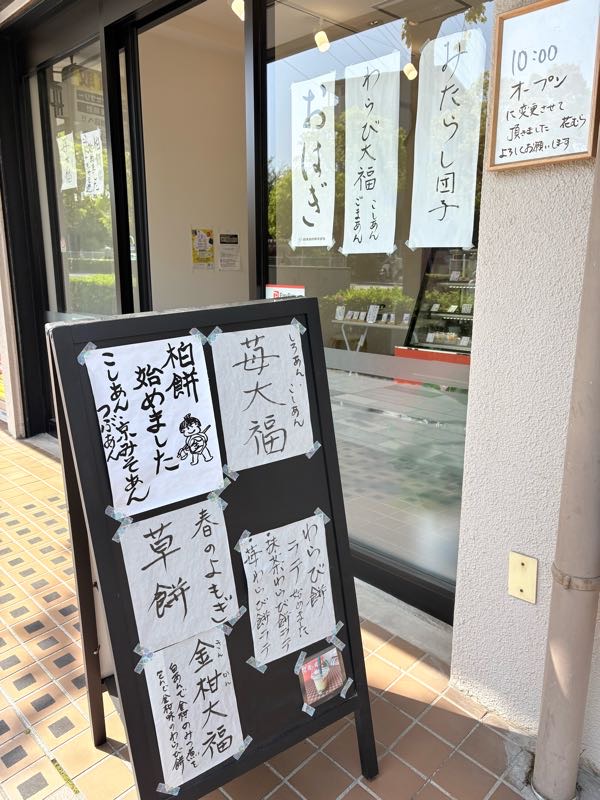 10:00
オープン
に変更させて
頂きました 花むら
よろしくお願いします
みたらし団子
わらび大福 こしあん
ごまあん
おはぎ
柏餅
始めました
こしあん 京みそあん
つぶあん
しろあん、こしあん
苺大福
春のよもぎ
草餅
わらび餅
ラテ
・抹茶わらび餅ラテ
・苺わらび餅ラテ
きん かん
金柑大福
白あんで金柑のみつ煮を